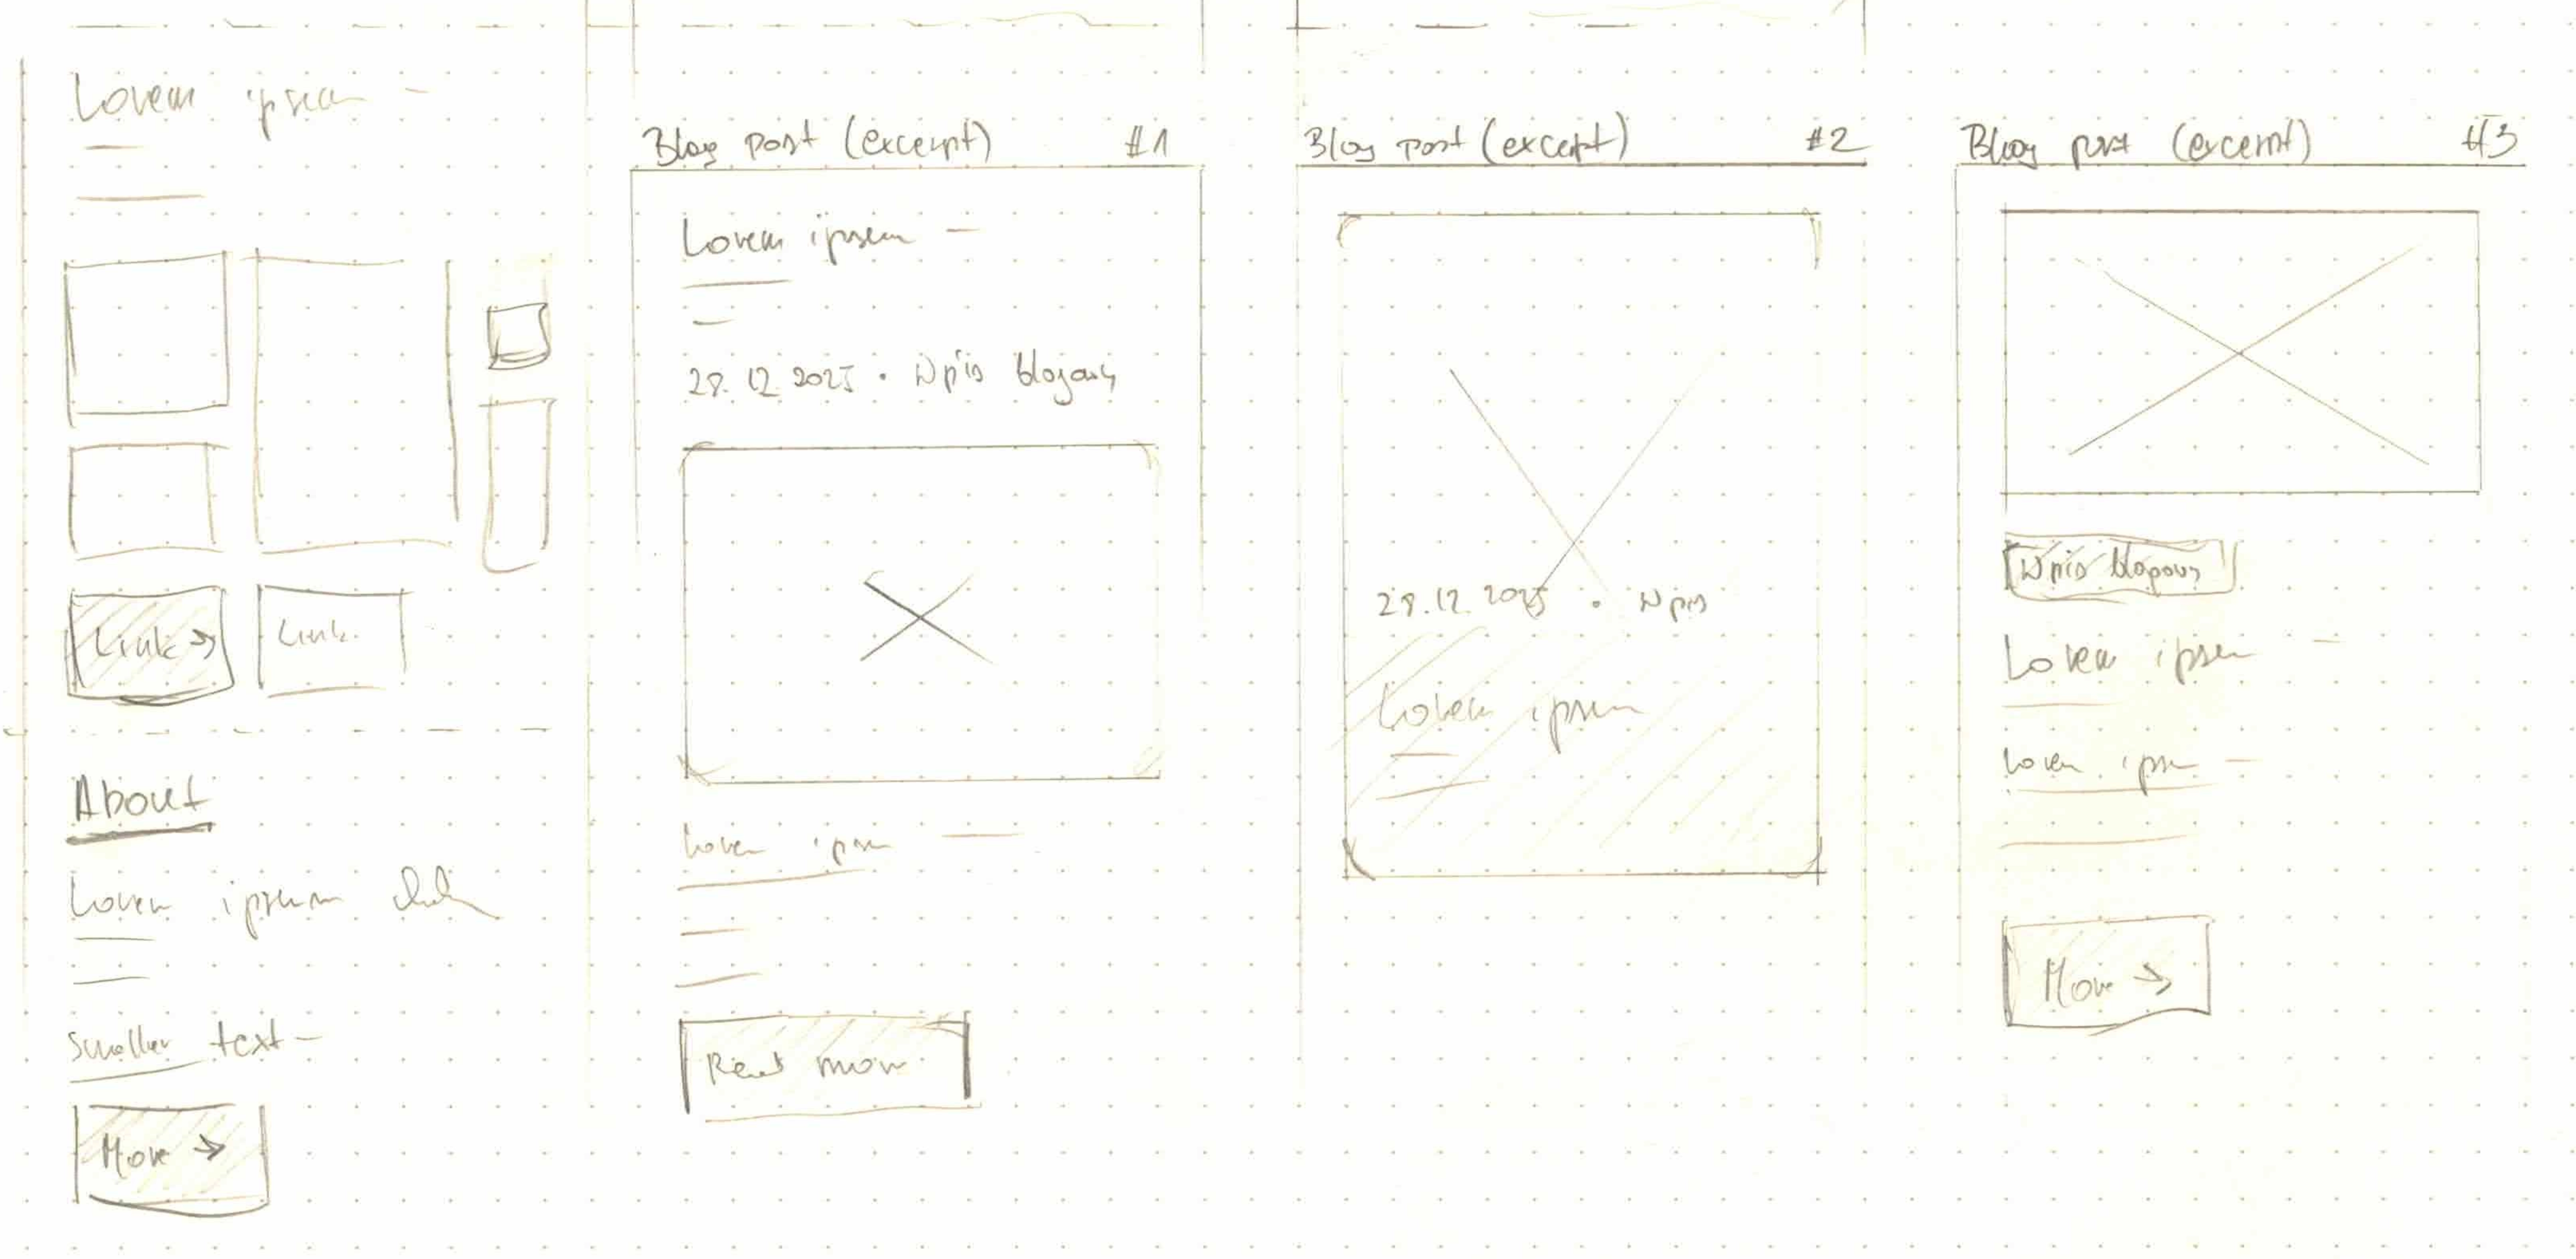 Lorem ipsum
Link →
Link
About
Lorem ipsum
Smaller text
More →
Blog post (excerpt) #1
Lorem ipsum
28.12.2025 • Wpis blogowy
Lorem ipsum
Read more
Blog post (excerpt) #2
28.12.2025 • Wpis
Lorem ipsum
Blog post (excerpt) #3
Wpis blogowy
Lorem ipsum
Lorem ipsum
More →